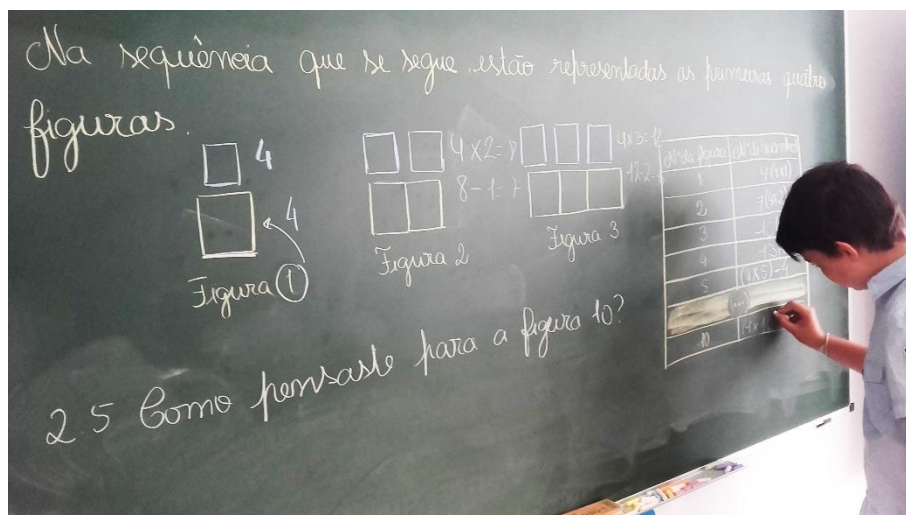 Na sequência que se segue estão representadas as primeiras quatro
figuras.
4
4
Figura 1
4x2=8
8-1=7
Figura 2
4x3=12
12-2=
Figura 3
Nº da figura
1
2
3
4
5 (4x5)-4
(...)
10
2.5 Como pensaste para a figura 10?